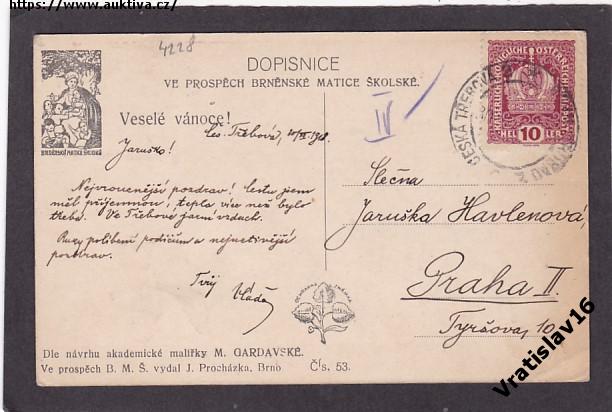 https://www.auktiva.cz/
4228
DOPISNICE
VE PROSPĚCH BRNĚNSKÉ MATICE ŠKOLSKÉ.
Veselé vánoce!
IV
Čes. Třebová,
Jaruško!
Nejvroucnější pozdrav! Cestu jsem
měl příjemnou, tepla více než bylo
třeba. Ve Třebové jarní vzduch.
Ruce políbení rodičům a nejuctivější
pozdrav.
Tvůj
Vláďa
KAISERLICHE KÖNIGLICHE ÖSTERREICHISCHE POST
HELLER
10
ČESKÁ TŘEBOVÁ
Slečna
Jaruška Havlenová,
Praha II.
Tyršova, 10.
Dle návrhu akademické malířky M. GARDAVSKÉ.
Ve prospěch B. M. Š. vydal J. Procházka, Brno Čís. 53.
Vratislav16